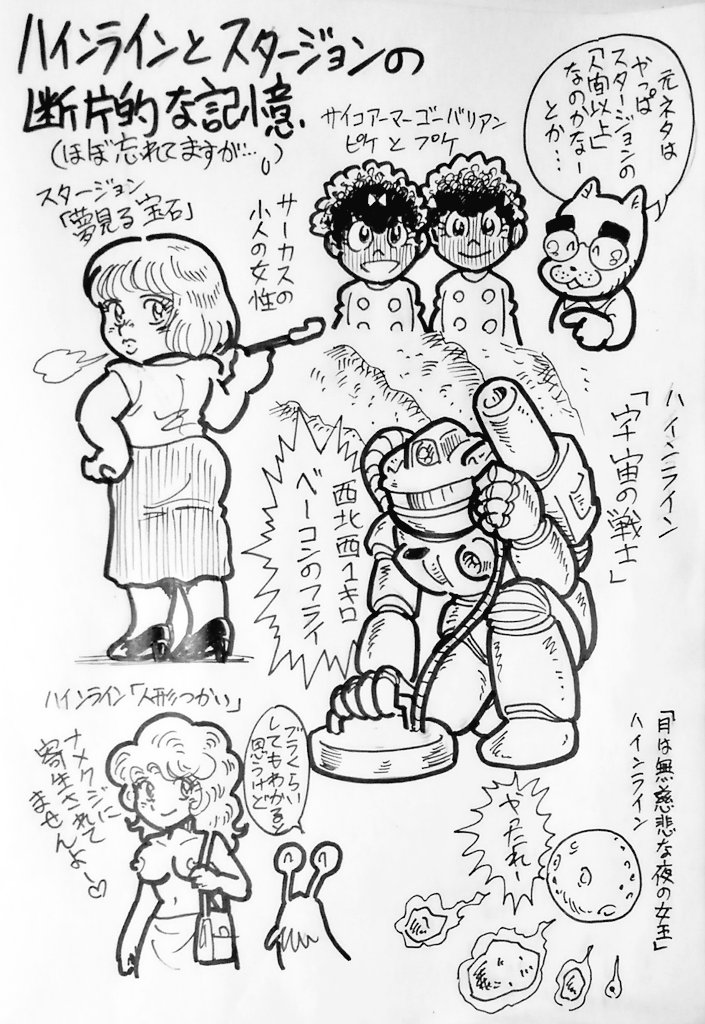 ハインラインとスタージョンの
断片的な記憶
(ほぼ忘れてますが…)
元ネタは
やっぱ
スタージョンの
「人間以上」
なのかなー
とか…
サイコアーマーゴーバリアン
ピケとプケ
スタージョン
「夢見る宝石」
サーカスの
小人の女性
ハインライン
「宇宙の戦士」
西北西1キロ
ベーコンのフライ
ハインライン「人形つかい」
ナメクジに
寄生されて
ませんよー♡
ブラくらい
してもわかると
思うけど
「月は無慈悲な夜の女王」
ハインライン
やったれー